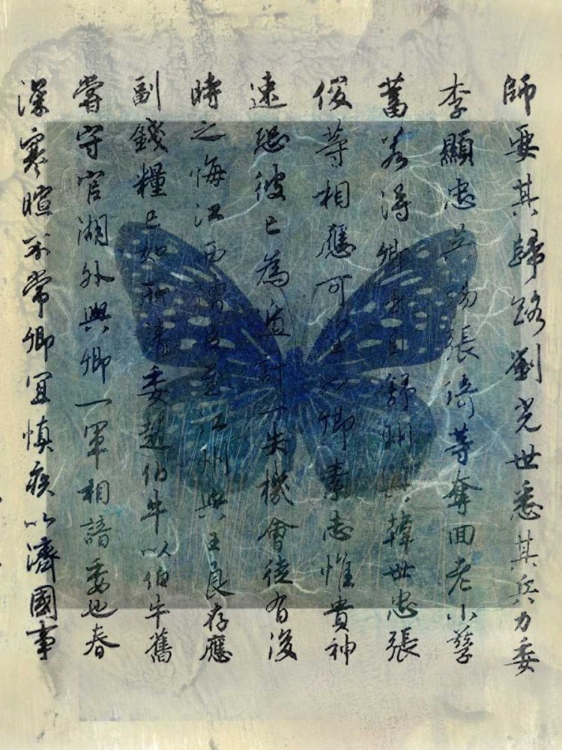 師要其歸路劉光世悉其兵力委
李顯忠吳錫張琦等奪回老小孳
蓄若得卿出自舒州與韓世忠張
俊等相應可望如卿素志惟貴神
速恐彼已為遁計一失機會徒有後
時之悔江西漕臣至江州與王良存應
副錢糧已如所請委趙伯牛以伯牛舊
嘗守官湖外與卿一軍相諳委也春
深寒暄不常卿宜慎疾以濟國事